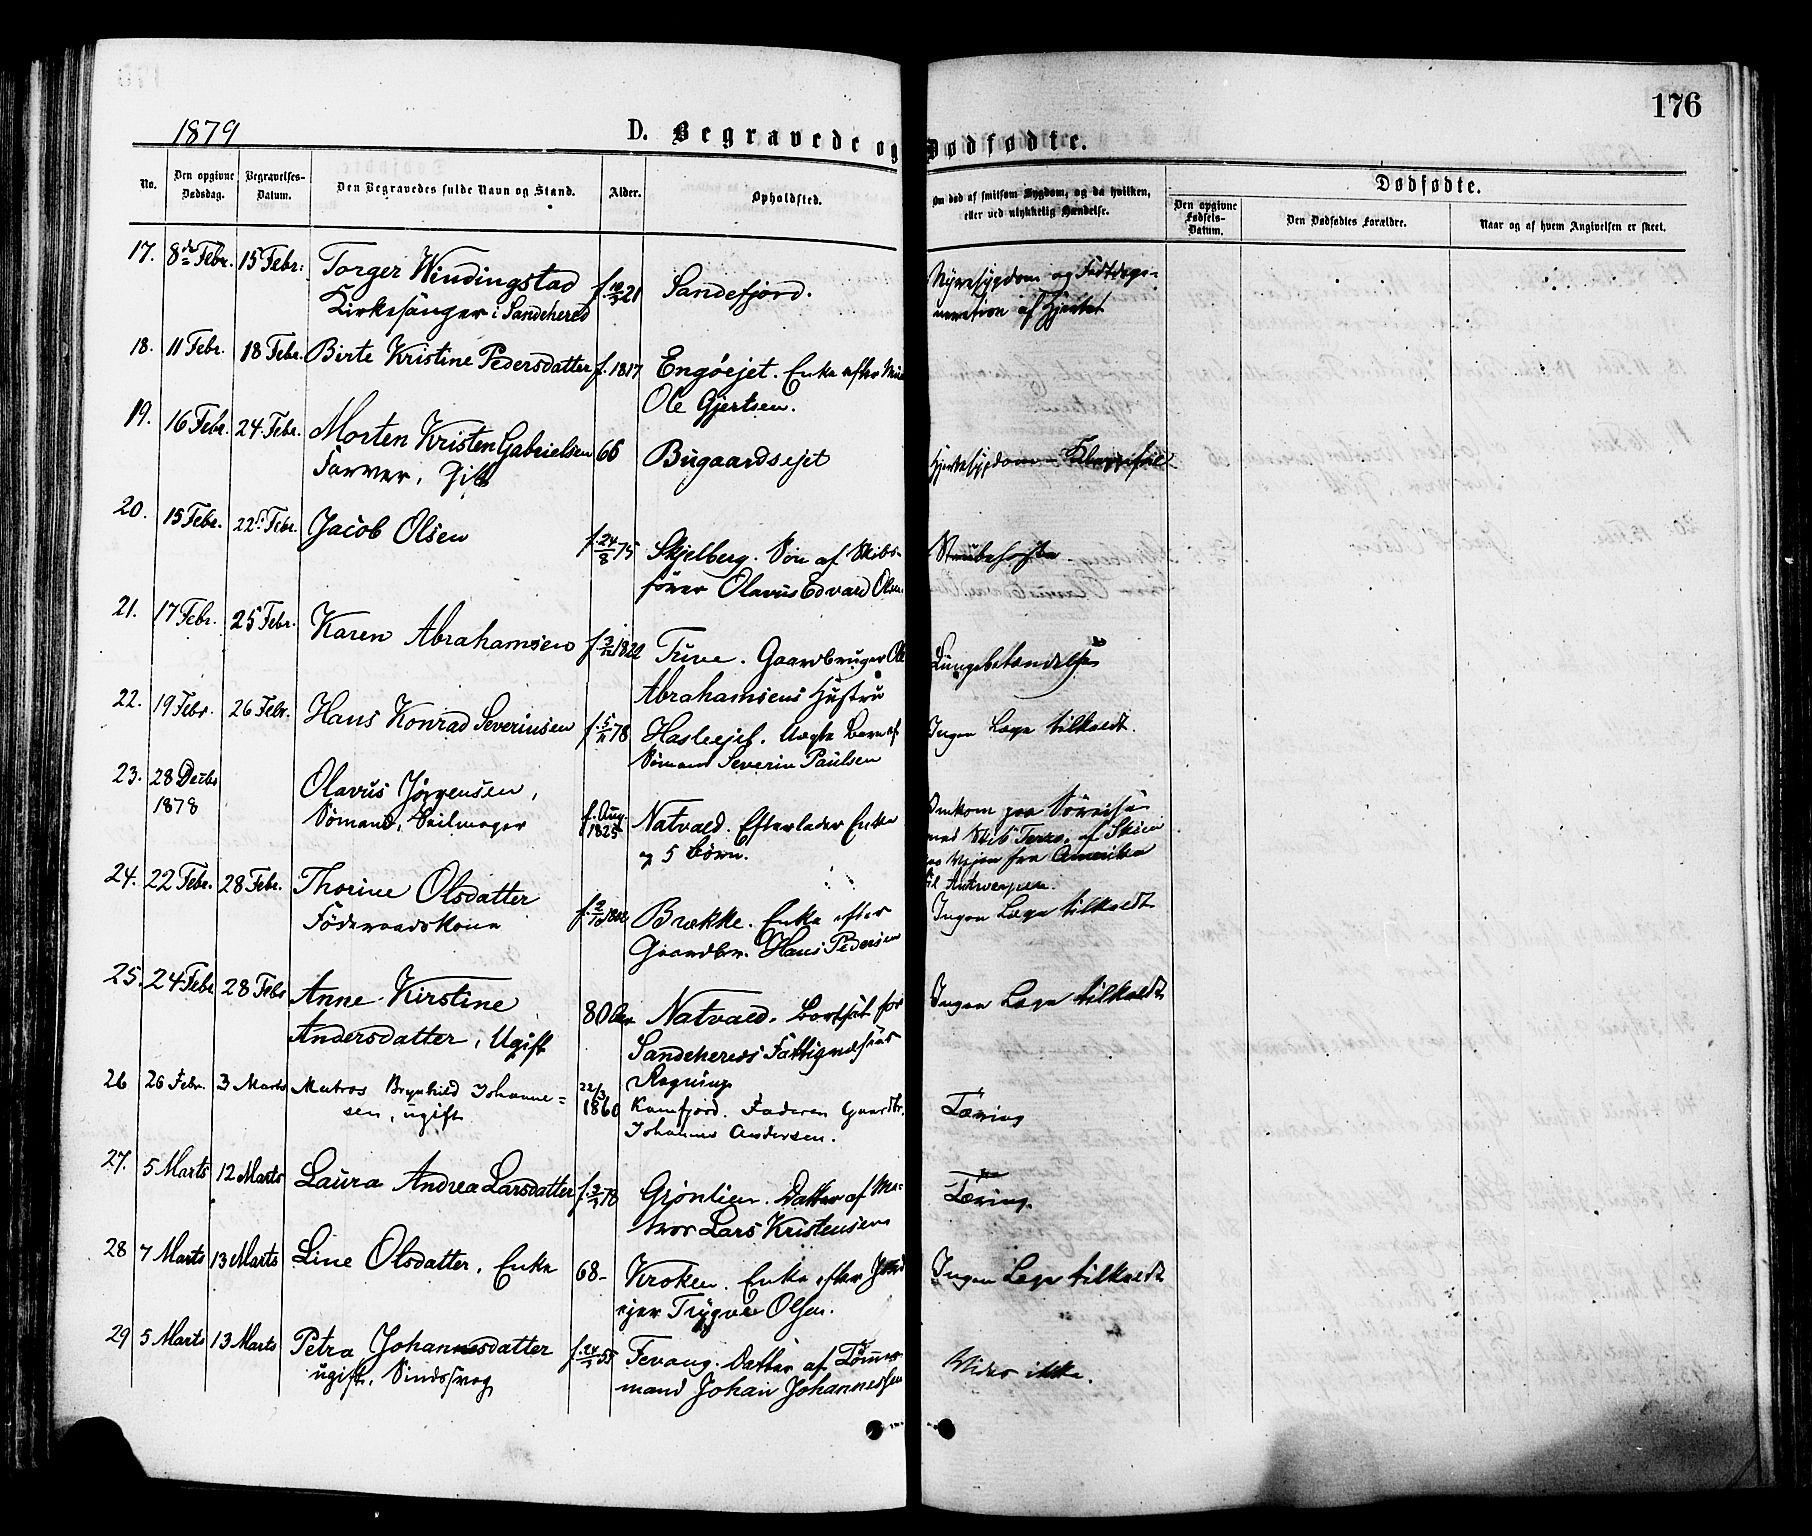 176
1879
D. Begravede og Dødfødte.
No.
Den opgivne Dødsdag.
Begravelses-Datum.
Den Begravedes fulde Navn og Stand.
Alder.
Opholdsted.
Om død af smitsom Sygdom, og da hvilken, eller ved ulykkelig Hændelse.
Dødfødte.
Den opgivne Fødsels-Datum.
Den Dødfødtes Forældre.
Naar og af hvem Angivelsen er skeet.
17. 8de Febr. 15 Febr: Torger Windingstad f. 21 Sandefjord. Nyresygdom og Fedtdege-
Kirkesanger i Sandehered neration af Hjertet
18. 11 Febr. 18 Febr. Birte Kristine Pedersdatter f. 1817 Engöejet. Enke efter
Ole Gjertsen.
19. 16 Febr. 24 Febr. Morten Kristen Gabrielsen 66 Bugaardsejet Hjertesygdom - Klappefeil
Farver, Gift
20. 15 Febr. 22 Febr. Jacob Olsen f. 24/8 75 Skjelberg. Søn af Skibs- Strubehoste
fører Olavus Edvard Olsen
21. 17 Febr. 25 Febr. Karen Abrahamsen f. 1822 Tuve. Gaardbruger Ole Lungebetændelse
Abrahamsens Hustru
22. 19 Febr. 26 Febr. Hans Konrad Severinsen f. 5/11 78 Hasleejet. Uægte Barn af Ingen Læge tilkaldt.
Sømand Severin Paulsen
23. 28 Decbr 1878 Olavus Jörgensen, f. Aug. 1825 Natvald. Efterlader Enke Omkom paa Söreise
Sömand, Seilmager og 5 Börn. med Skib af Skien
paa Vejen fra Amerika
til Antwerpen.
24. 22 Febr. 28 Febr. Thorine Olsdatter Brække. Enke efter Ingen Læge tilkaldt
Föderaadskone Gaardbr. Hans Pedersen
25. 24 Febr 28 Febr Anne Kirstine 80 Aar Natvald. Bortsat for Ingen Læge tilkaldt
Andersdatter, Ugift Sandehereds Fattigvæsens
Regning
26 26 Febr. 3 Marts Matros Brynhild Johanne= 22/3 1860 Kamfjord. Faderen Gaardbr. Tæring
sen, ugift Johannes Andersen.
27. 5 Marts 12 Marts Laura Andrea Larsdatter f. 78 Grönlien. Datter af Ma- Tæring.
tros Lars Kristensen
28 7 Marts 13 Marts Line Olsdatter, Enke 68- Kroken. Enke efter Jord Ingen Læge tilkaldt
ejer Trygve Olsen.
29 5 Marts 13 Marts Petra Johannesdatter f. 55 Fevang. Datter af Tömmer- Vides ikke.
ugift, Sindssvag mand Johan Johannessen